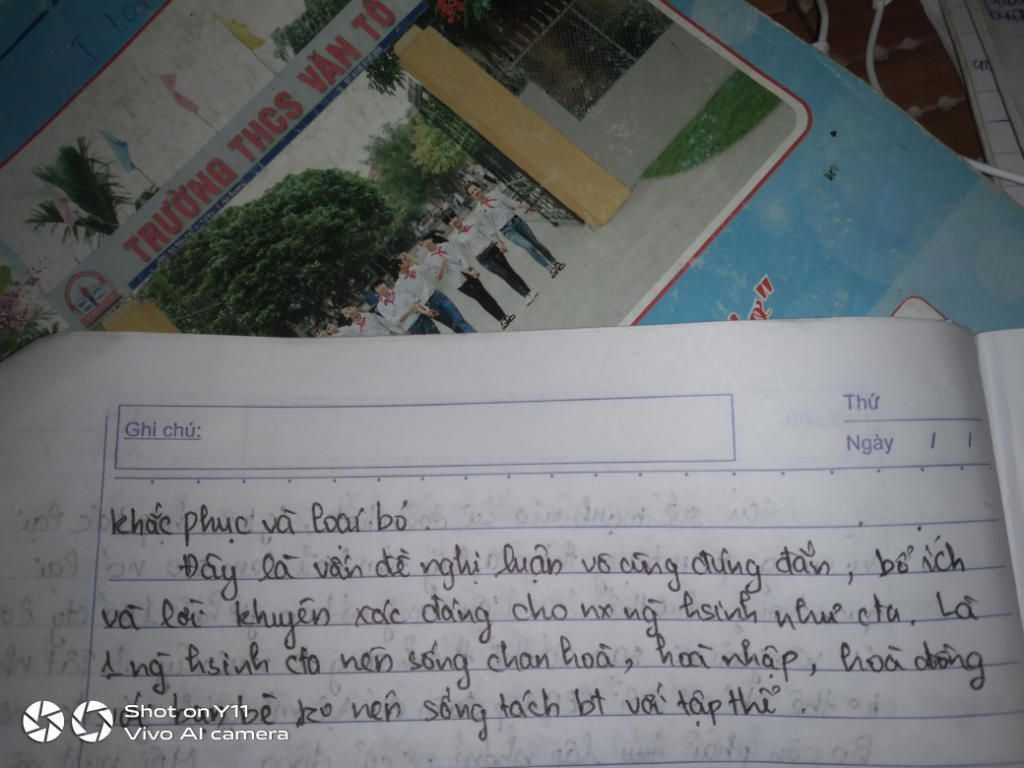 I Lov
TRƯỜNG THCS VĂN TỐ
Ghi chú:
Thứ
Ngày / /
khắc phục và loại bỏ.
Đây là vấn đề nghị luận vô cùng đúng đắn, bổ ích
và lời khuyên xác đáng cho nx ng hsinh như cta. Là
1 ng hsinh cta nên sống chan hoà, hoà nhập, hoà đồng
với bạn bè ko nên sống tách bt với tập thể.
Shot on Y11
Vivo AI camera